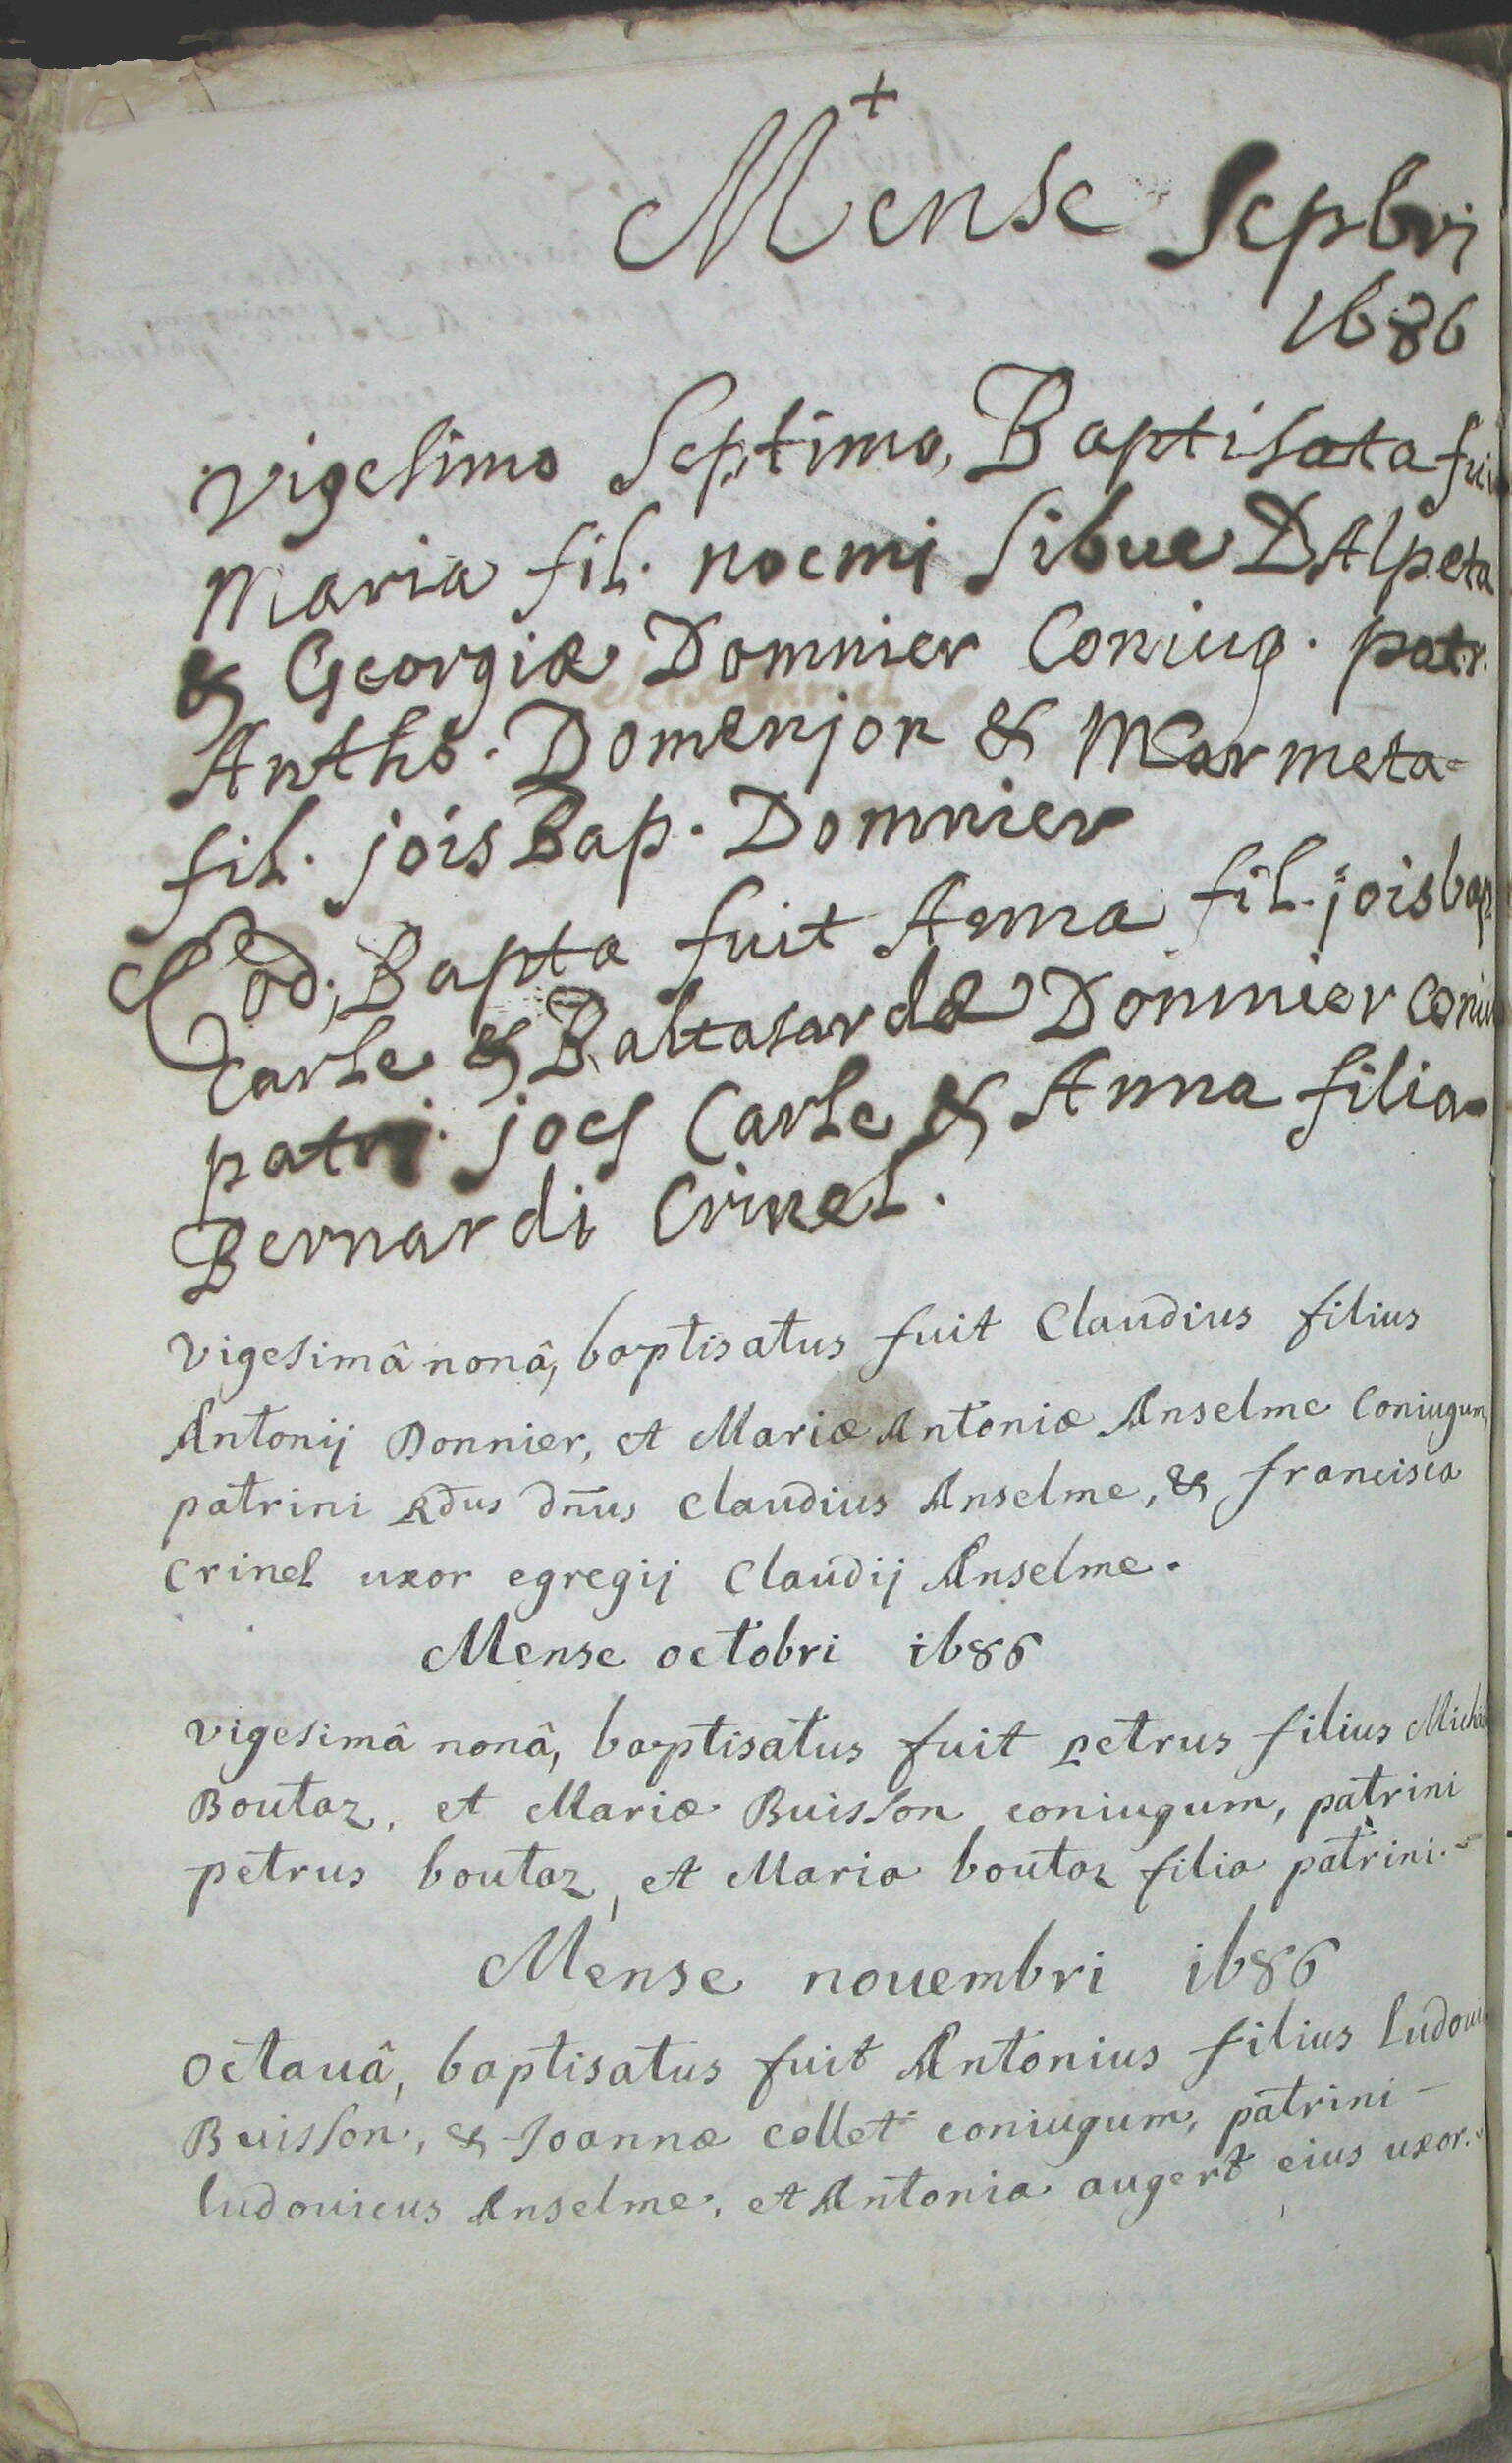 +
Mense sepbri
1686
vigesimo septimo, Baptisata fui
Maria fil. noemi sibue DAlpeta
& Georgiæ Domnier Coniug. patr.
Antho. Domenjon & Marmeta
fil. jois Bap. Domnier
Eod. Bapta fuit Anna fil. jois bap
Carle & Baltasardæ Domnier Coniu
patri joes Carle & Anna filia
Bernardi Crinel.
vigesimâ nonâ, baptisatus fuit Claudius filius
Antonij Donnier, et Mariæ Antoniæ Anselme Coniugum,
patrini Rdus dnus Claudius Anselme, & francisca
Crinel uxor egregij Claudij Anselme.
Mense octobri 1686
vigesimâ nonâ, baptisatus fuit petrus filius
Boutaz, et Mariæ Buisson coniugum, patrini
petrus boutaz, et Maria boutaz filia patrini.
Mense nouembri 1686
octauâ, baptisatus fuit Antonius filius ludoui
Buisson, & Joannæ collet coniugum, patrini
ludouicus Anselme, et Antonia augert eius uxor.